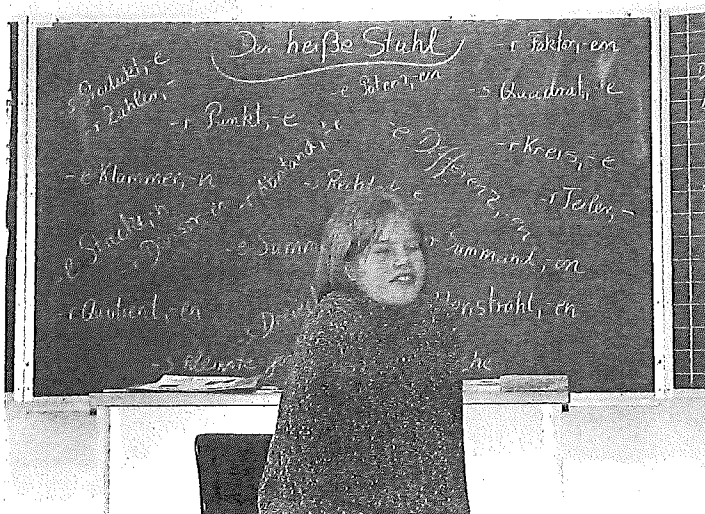 Der heiße Stuhl
-r Faktor,-en
-s Produkt,-e
-e Potenz,-en
-s Quadrat,-e
-r Zähler,-
-r Punkt,-e
-r Kreis,-e
-e Klammer,-n
-r Abstand,
-e Differenz,-en
-r Teiler,-
-e Strecke,-n
-r Divisor,-en
-s Recht
-e Summ
r Summand,-en
-r Quotient,-en
enstrahl,-en